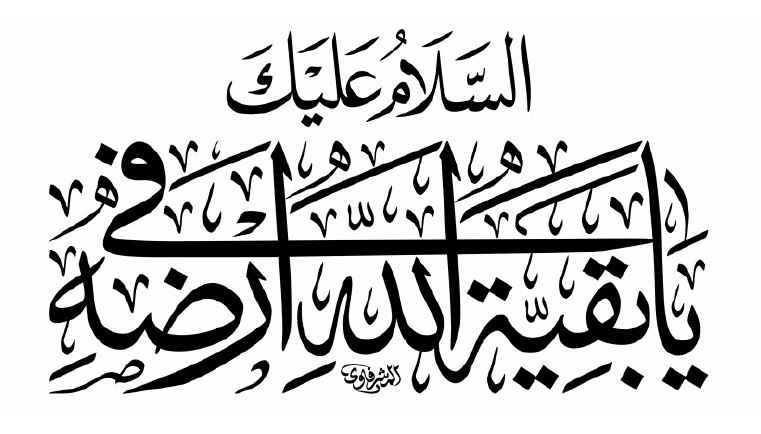 السَّلَامُ عَلَيْكَ
يا بقيَّة اللهِ في ارضه
المشرفاوي